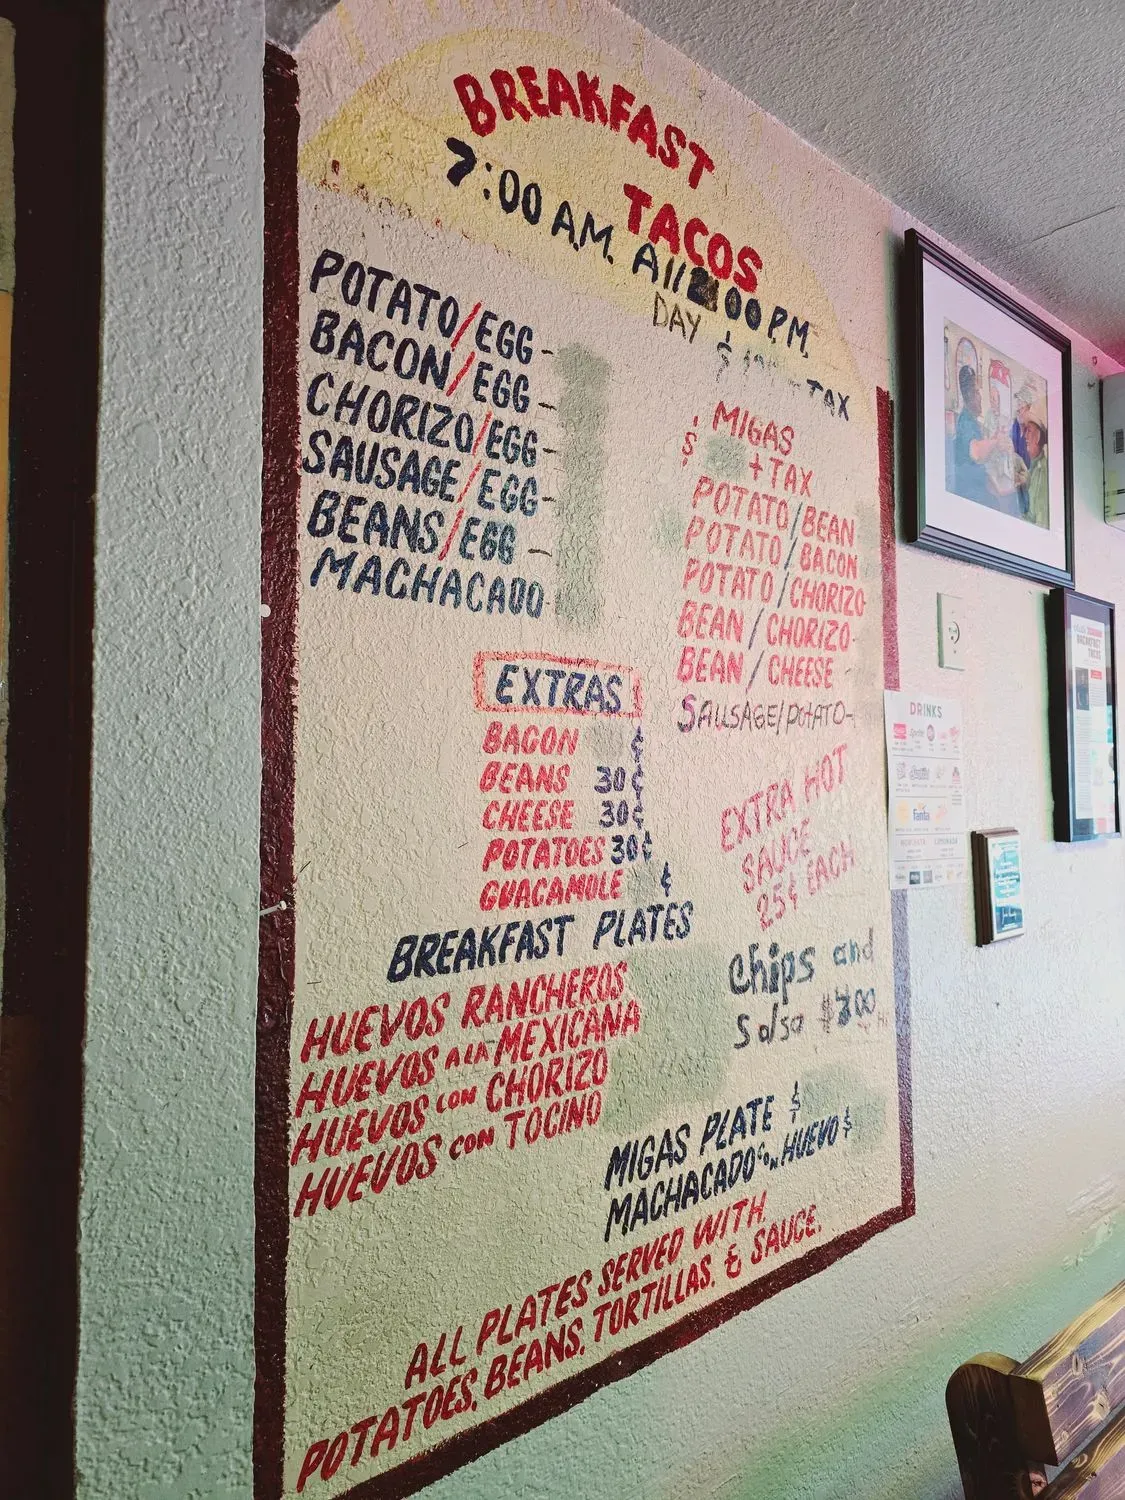 BREAKFAST
TACOS
7:00 A.M. All 00 P.M.
DAY
+ TAX
POTATO/EGG -
BACON/EGG -
CHORIZO/EGG -
SAUSAGE/EGG -
BEANS/EGG -
MACHACADO -
MIGAS
$ + TAX
POTATO/BEAN
POTATO/BACON
POTATO/CHORIZO
BEAN/CHORIZO-
BEAN/CHEESE -
SAUSAGE/POTATO-
EXTRAS
BACON ¢
BEANS 30¢
CHEESE 30¢
POTATOES 30¢
GUACAMOLE ¢
EXTRA HOT
SAUCE
25¢ EACH
Chips and
Salsa
BREAKFAST PLATES
HUEVOS RANCHEROS
HUEVOS A LA MEXICANA
HUEVOS CON CHORIZO
HUEVOS CON TOCINO
MIGAS PLATE $
MACHACADO CON HUEVO $
ALL PLATES SERVED WITH
POTATOES, BEANS, TORTILLAS, & SAUCE.
DRINKS
fanta
BREAKFAST
TACOS